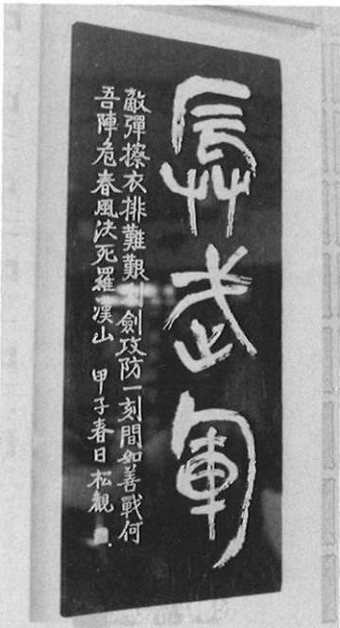 振武軍
敵彈擦衣排難艱 劍攻防一刻間如善戰何
吾陣危春風决死羅漢山 甲子春日 松觀